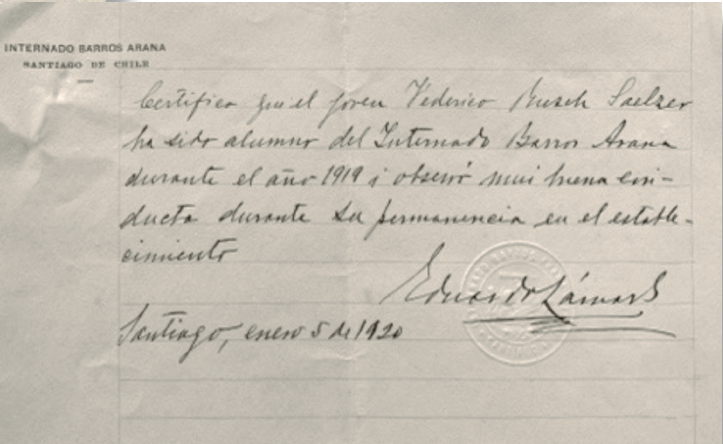 INTERNADO BARROS ARANA
SANTIAGO DE CHILE
Certifico que el joven Federico Busch Saelzer
ha sido alumno del Internado Barros Arana
durante el año 1919 i observó mui buena con-
ducta durante su permanencia en el estable-
cimiento
Eduardo Lámas
Santiago, enero 5 de 1920